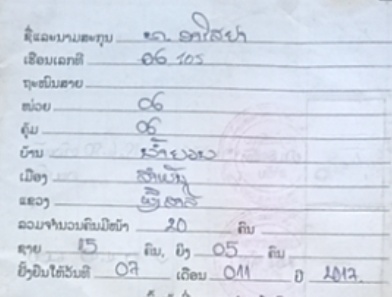 ຊື່ແລະນາມສະກຸນ ທ
ເຮືອນເລກທີ 06 105
ຖະໜົນສາຍ
ໜ່ວຍ 06
ຄຸ້ມ 06
ບ້ານ
ເມືອງ ສຳພັນ
ແຂວງ ຜົ້ງສາລີ
ລວມຈຳນວນຄົນມີໜ້າ 20 ຄົນ
ຊາຍ 15 ຄົນ, ຍິງ 05 ຄົນ
ຍັ້ງຢືນໃຫ້ວັນທີ 07 ເດືອນ 011 ປີ 2017